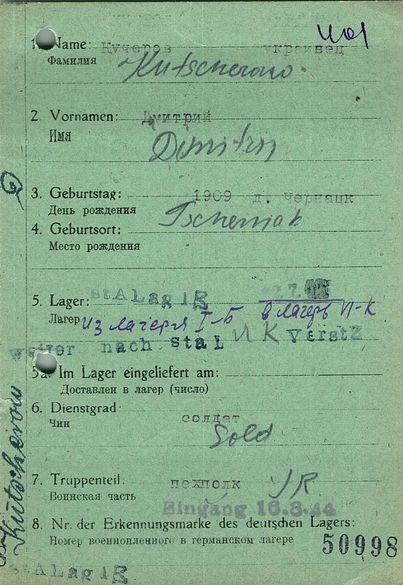 1. Name: Кучеров украинец
Фамилия Kutscherow
2. Vornamen: Дмитрий
Имя Dmitry
3. Geburtstag: 1909 д. Чернацк
День рождения
4. Geburtsort: Tschernatz
Место рождения
5. Lager: stALag IB
Лагерь Из лагеря I-Б в лагерь VI-К
weiter nach stAL VI K Versetz
5a. Im Lager eingeliefert am:
Доставлен в лагер (число)
6. Dienstgrad: солдат
Чин Sold
7. Truppenteil: пехполк JR
Воинская часть
Eingang 16.3.44
8. Nr. der Erkennungsmarke des deutschen Lagers:
Номер военнопленного в германском лагере 50998
stALag IB
Kutscherow